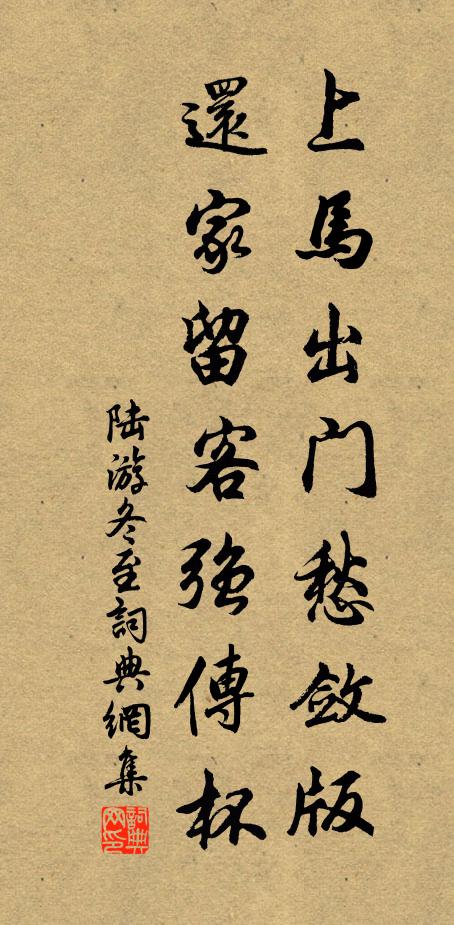 上馬出门愁斂版
還家留客強傳杯
陆游冬至詞典網集
詞典網印